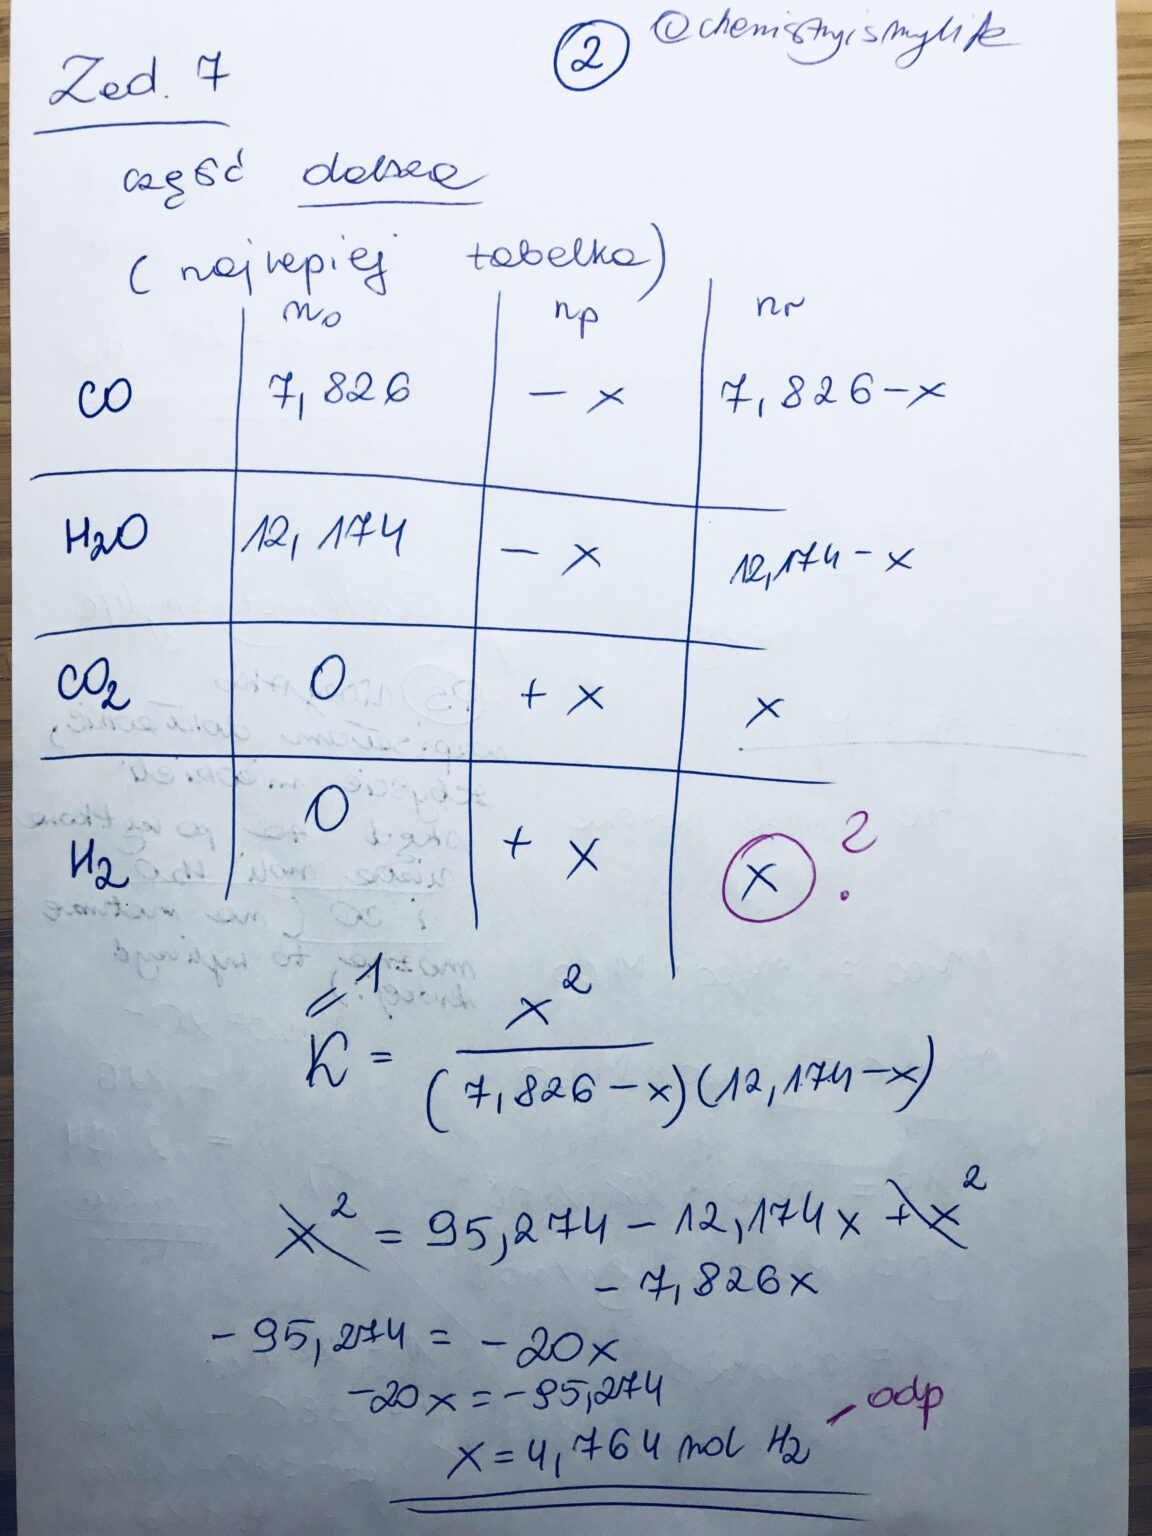 @chemistryismylife
2
Zad. 7
część dalsza
(najlepiej tabelka)
n₀ np nr
CO 7,826 - x 7,826-x
H₂O 12,174 - x 12,174-x
CO₂ 0 + x x
H₂ 0 + x x ?
1
K = x² / (7,826-x)(12,174-x)
x² = 95,274 - 12,174x + x²
- 7,826x
- 95,274 = - 20x
-20x = -95,274
odp
x = 4,764 mol H₂